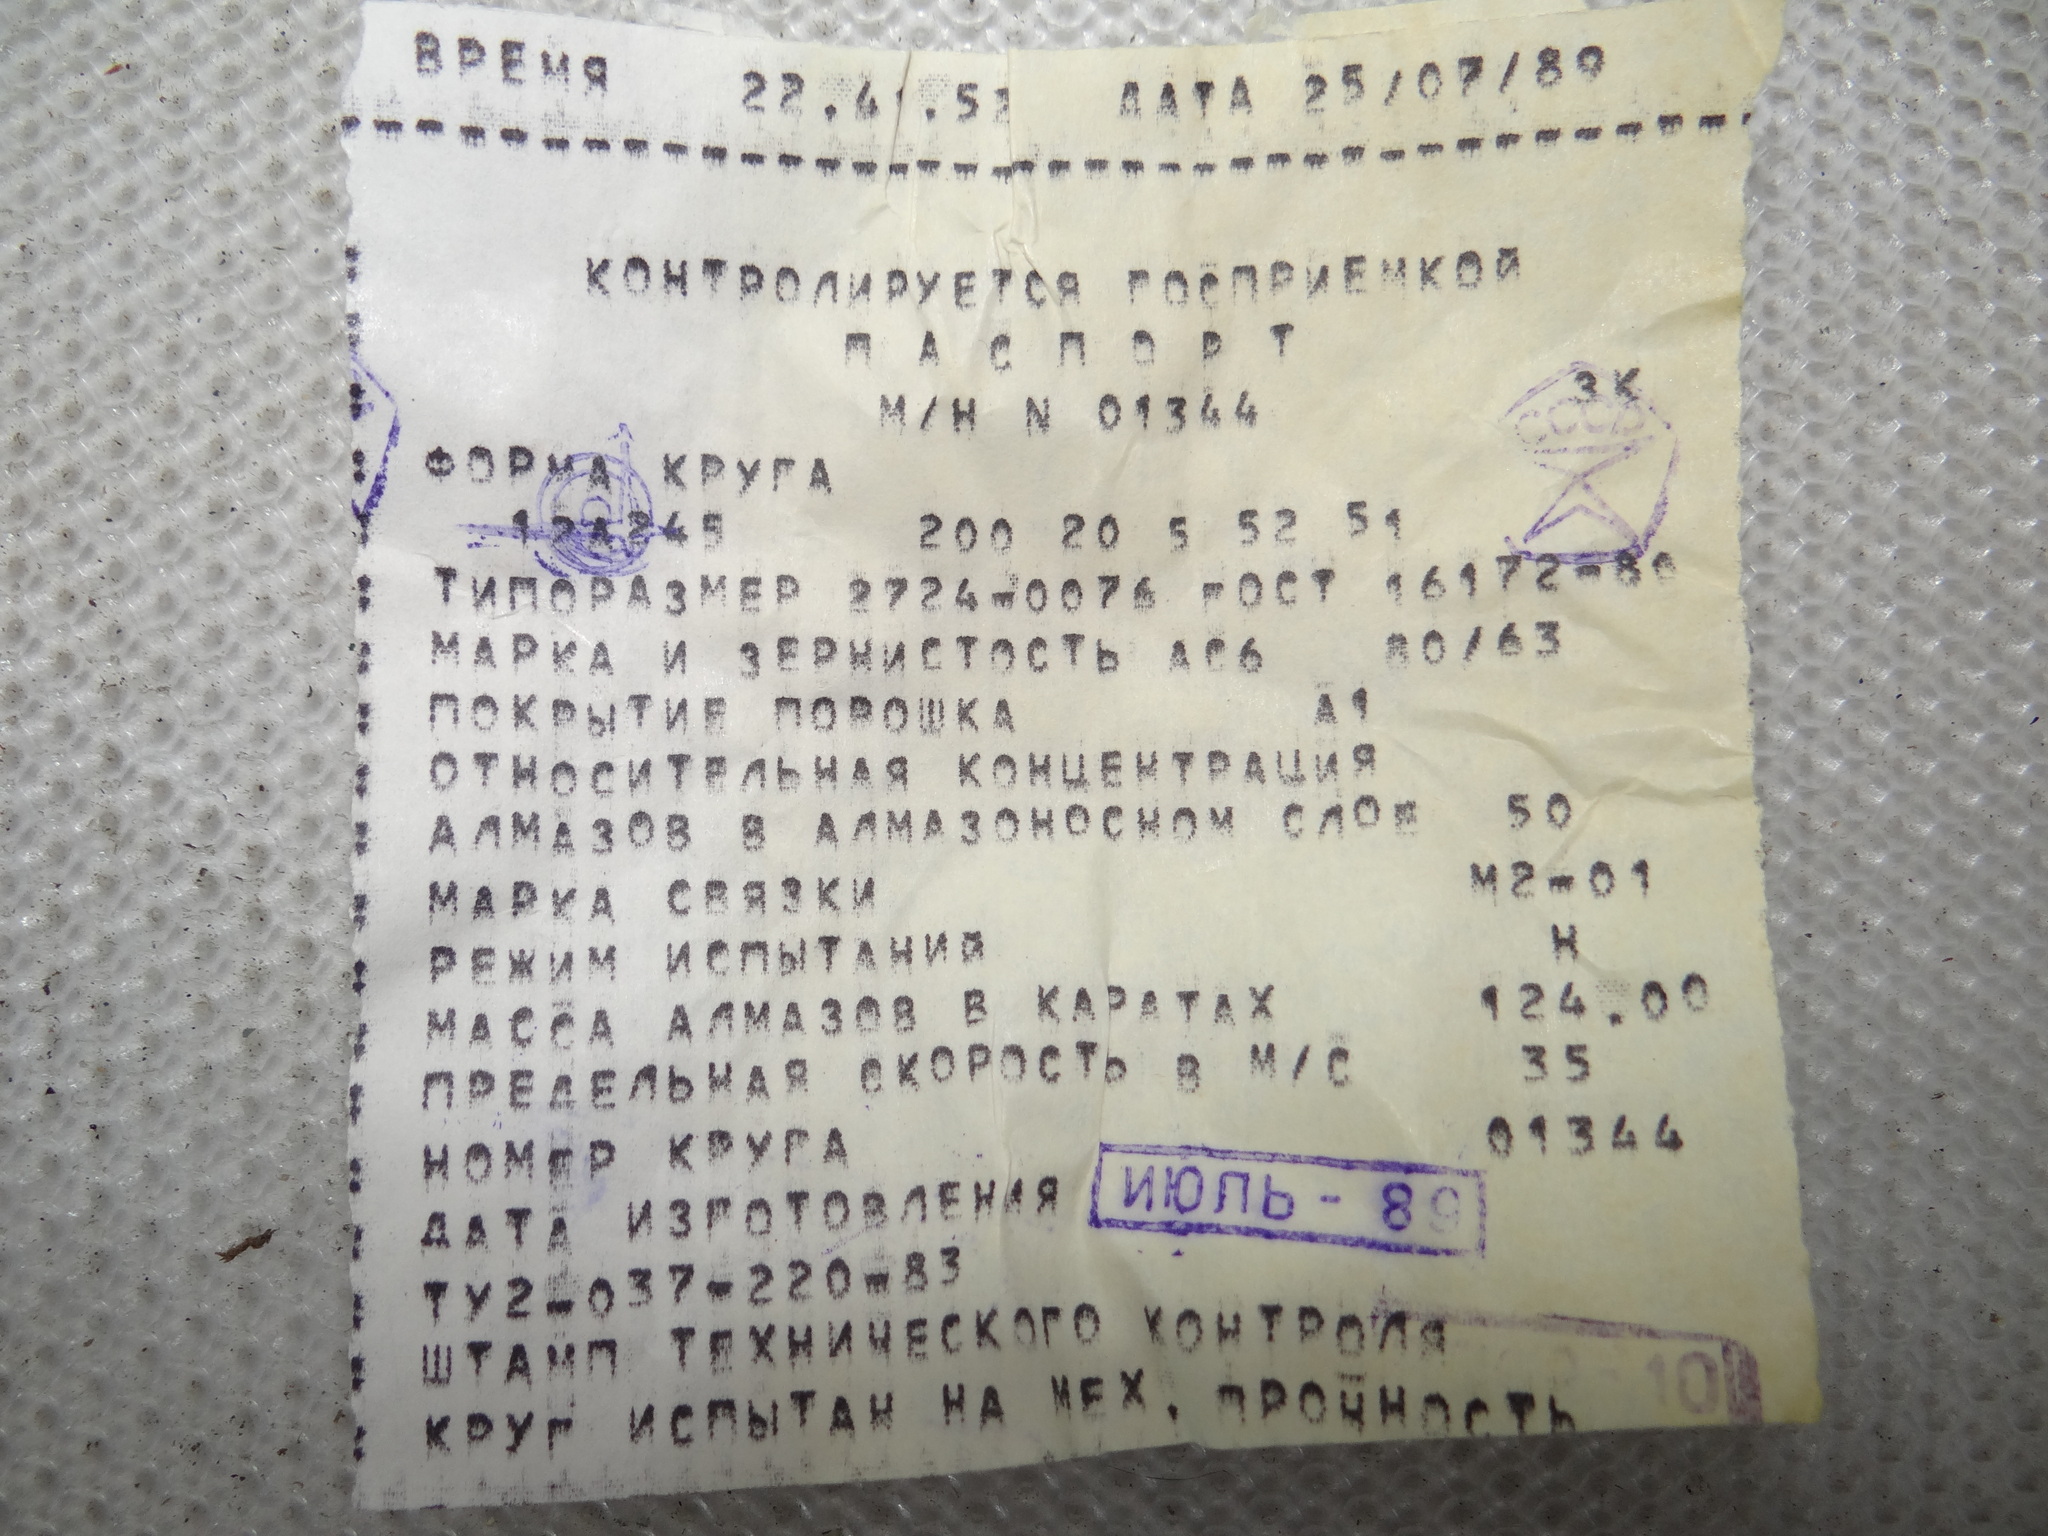 ВРЕМЯ ДАТА 25/07/89
КОНТРОЛИРУЕТСЯ ГОСПРИЕМКОЙ
П А С П О Р Т
М/Н N 01344 3К
СССР
ФОРМА КРУГА
12А245 200 20 5 52 51
ТИПОРАЗМЕР 2724-0076 ГОСТ 16172-80
МАРКА И ЗЕРНИСТОСТЬ АС6 80/63
ПОКРЫТИЕ ПОРОШКА А1
ОТНОСИТЕЛЬНАЯ КОНЦЕНТРАЦИЯ
АЛМАЗОВ В АЛМАЗОНОСНОМ СЛОЕ 50
МАРКА СВЯЗКИ М2-01
РЕЖИМ ИСПЫТАНИЙ Н
МАССА АЛМАЗОВ В КАРАТАХ 124.00
ПРЕДЕЛЬНАЯ СКОРОСТЬ В М/С 35
НОМЕР КРУГА 01344
ДАТА ИЗГОТОВЛЕНИЯ ИЮЛЬ - 89
ТУ2-037-220-83
ШТАМП ТЕХНИЧЕСКОГО КОНТРОЛЯ
КРУГ ИСПЫТАН НА МЕХ. ПРОЧНОСТЬ